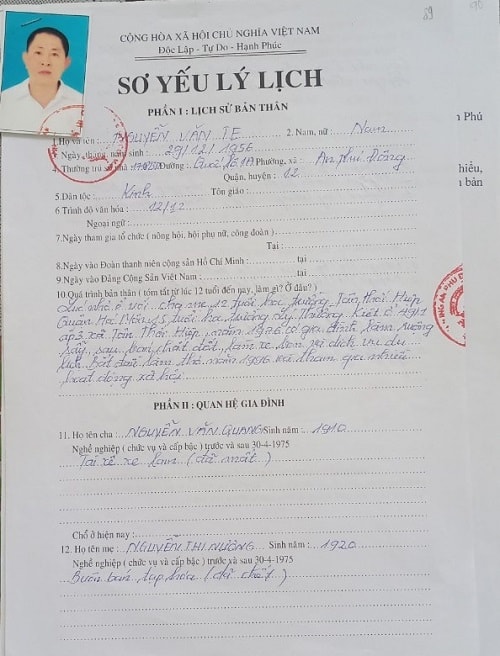 89
CỘNG HÒA XÃ HỘI CHỦ NGHĨA VIỆT NAM
Độc Lập - Tự Do - Hạnh Phúc
SƠ YẾU LÝ LỊCH
PHẦN I : LỊCH SỬ BẢN THÂN
1. Họ và tên : NGUYỄN VĂN TE 2. Nam, nữ : Nam
3. Ngày, tháng, năm sinh : 29/12/1956
4. Thường trú số nhà Đường : Quốc lộ 1A Phường, xã : An Phú Đông
Quận, huyện : 12
5. Dân tộc : Kinh Tôn giáo :
6. Trình độ văn hóa : 12/12
Ngoại ngữ :
7. Ngày tham gia tổ chức ( nông hội, hội phụ nữ, công đoàn )
Tại :
8. Ngày vào Đoàn thanh niên cộng sản Hồ Chí Minh : tại :
9. Ngày vào Đảng Cộng Sản Việt Nam : tại :
10. Quá trình bản thân ( tóm tắt từ lúc 12 tuổi đến nay, làm gì? Ở đâu? )
Lúc nhỏ ở với cha mẹ 12 tuổi học trường Tân Thới Hiệp
Quận Hóc Môn, 15 tuổi học trường Lý Thường Kiệt ở 49/1
ấp 3 xã Tân Thới Hiệp, năm 1976 có gia đình làm ruộng
rẫy, sau bán đất làm xe dịch vụ du
lịch. Bắt đầu làm thơ năm 1996 và tham gia nhiều
hoạt động xã hội
PHẦN II : QUAN HỆ GIA ĐÌNH
11. Họ tên cha : NGUYỄN VĂN QUANG Sinh năm : 1910
Nghề nghiệp ( chức vụ và cấp bậc ) trước và sau 30-4-1975
Tài xế xe lam (đã mất)
Chỗ ở hiện nay :
12. Họ tên mẹ : NGUYỄN THỊ NƯƠNG Sinh năm : 1920
Nghề nghiệp ( chức vụ và cấp bậc ) trước và sau 30-4-1975
Buôn bán tạp hóa (đã chết)
n Phú
hiểu,
n bản